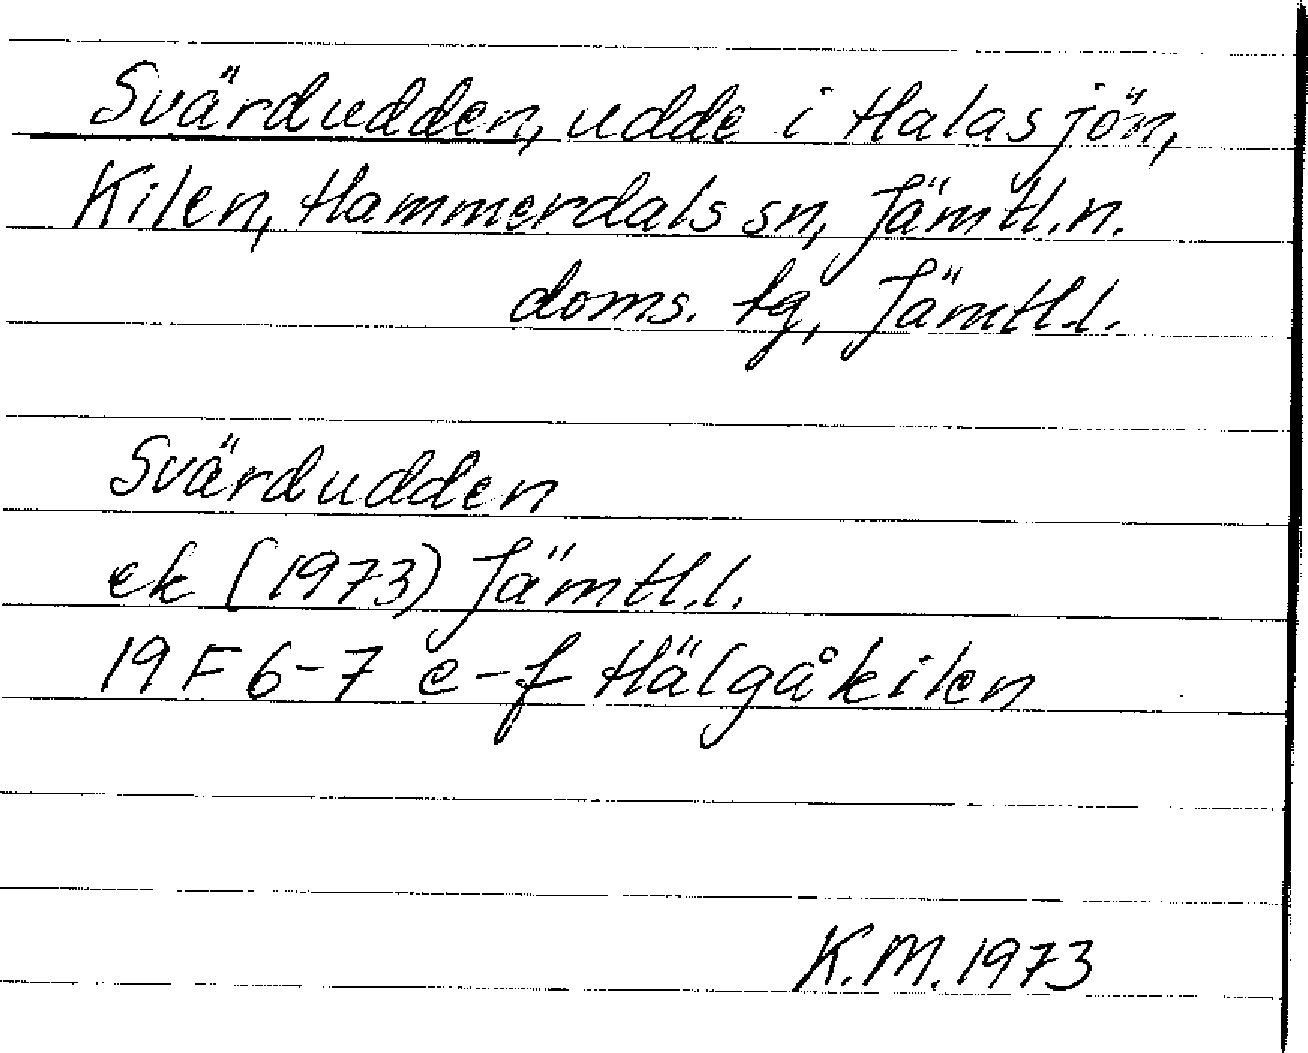 Svärdudden, udde i Halasjön,
Kilen, Hammerdals sn, Jämtl.n.
doms. tg, Jämtl.l.
Svärdudden
ek (1973) Jämtl.l.
19 F 6-7 e-f Hälgåkilen
K.M. 1973